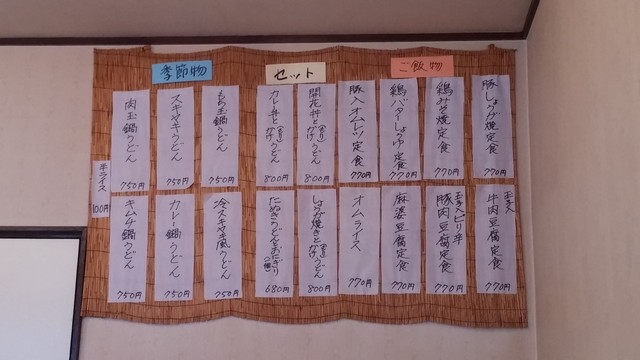 ご飯物
豚しょうが焼定食
770円
鶏みそ焼定食
770円
鶏バターしょうゆ定食
770円
豚入オムレツ定食
770円
玉子入
牛肉豆腐定食
770円
玉子入ピリ辛
豚肉豆腐定食
770円
麻婆豆腐定食
770円
オムライス
770円
セット
開花丼と
かけうどん
800円
カレー丼と
かけうどん
800円
しょうが焼きと
うどん
800円
たぬきうどんとおにぎり
680円
季節物
もち玉鍋うどん
750円
スキヤキうどん
750円
肉玉鍋うどん
750円
冷スキヤキ風うどん
750円
カレー鍋うどん
750円
キムチ鍋うどん
750円
半ライス
100円